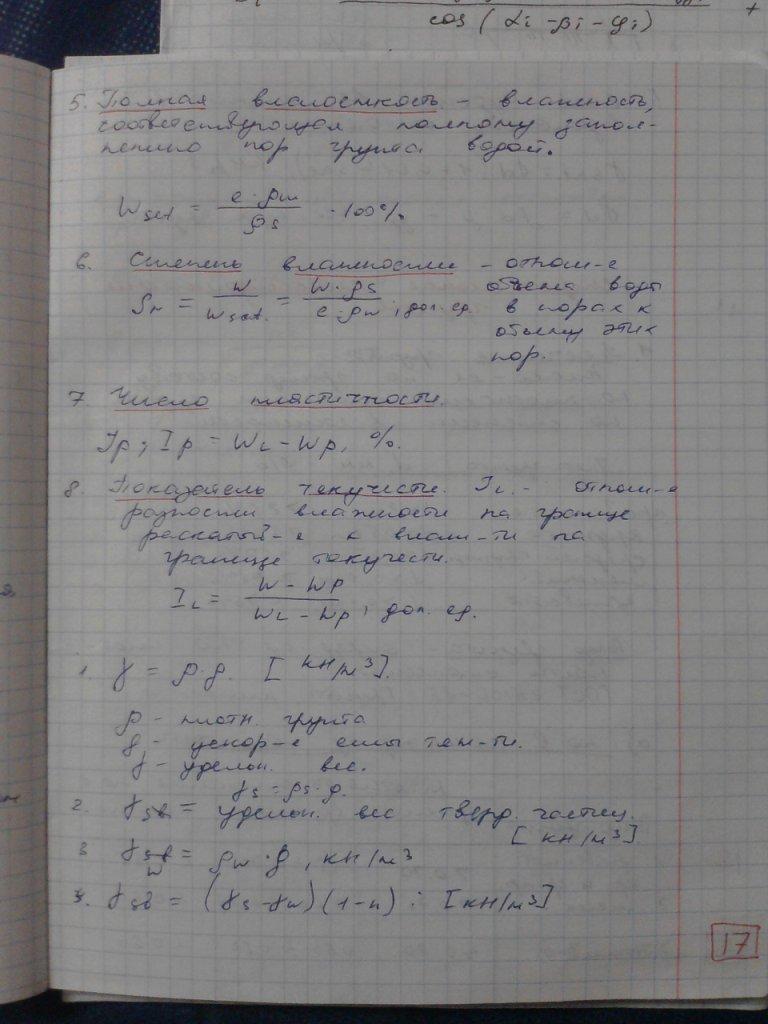 cos (αi - βi - φi)
+
5. Полная влагоемкость - влажность,
соответствующая полному запол-
нению пор грунта водой.
Wsat = e·ρw / ρs · 100%
6. Степень влажности - отнош-е
объема воды
в порах к
объему этих
пор.
Sr = W / Wsat = W·ρs / e·ρw ; дол. ед.
7 Число пластичности.
Jp; Ip = WL - Wp, %.
8. Показатель текучести. IL - отнош-е
разности влажности на границе
раскатыв-е к влаж-ти на
границе текучести.
IL = W - Wp / WL - Wp, дол. ед.
1. γ = ρ·g. [кН/м³].
ρ - плотн. грунта
g - ускор-е силы тяж-ти.
γ - удельн. вес.
γs = ρs·g.
2. γs = удельн. вес тверд. частиц.
[кН/м³]
3 γw = ρw·g, кН/м³
4. γsb = (γs - γw)(1-n) ; [кН/м³]
17